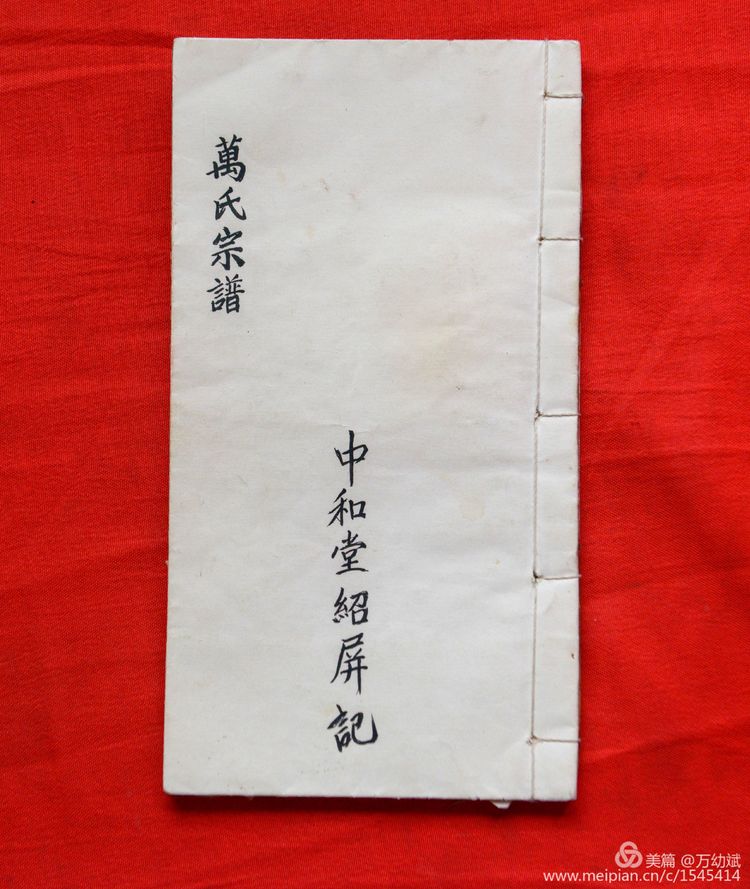 萬氏宗譜
中和堂紹屏記
美篇 @万幼斌
www.meipian.cn/c/1545414